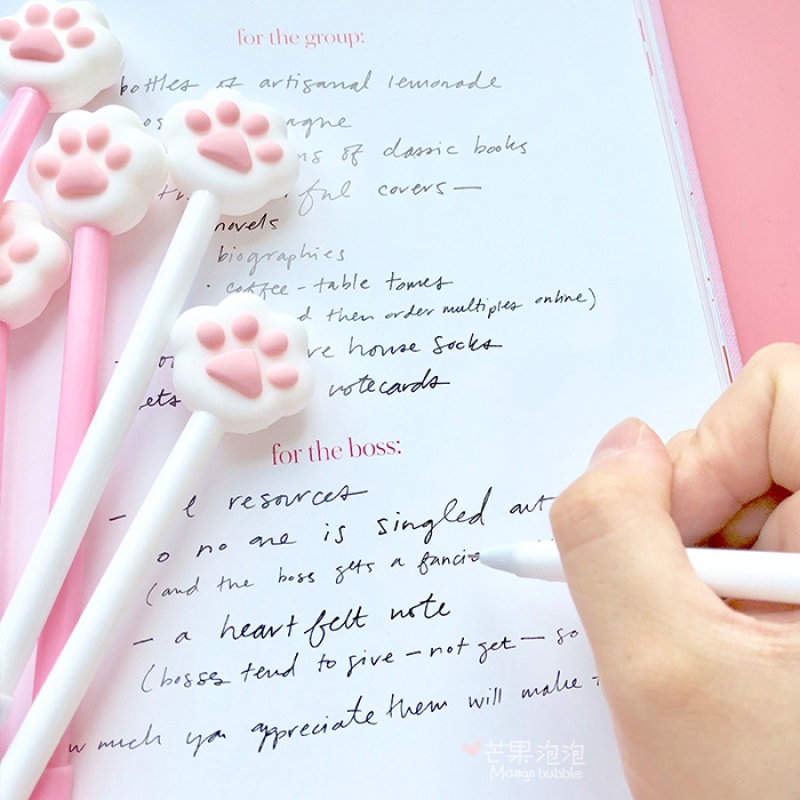 for the group:
bottles of artisanal lemonade
of classic books
covers —
novels
biographies
· coffee - table tomes
then order multiples online)
house socks
notecards
for the boss:
- resources
no one is singled out
(and the boss gets a
- a heartfelt note
(bosses tend to give - not get - so
much you appreciate them will make
芒果泡泡
Mango bubble